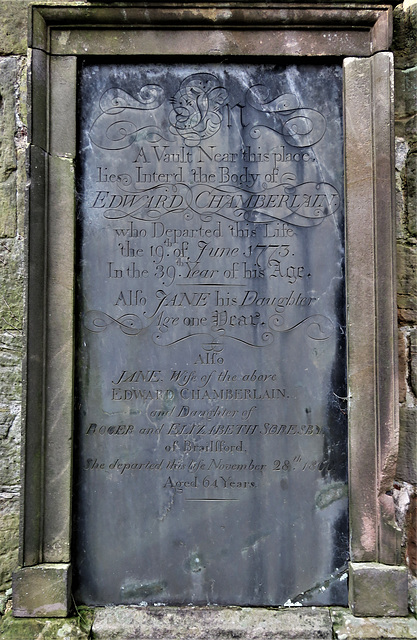 In
A Vault Near this place,
lies Inter'd the Body of
EDWARD CHAMBERLAIN,
who Departed this Life
the 19th of June 1773.
In the 39th Year of his Age.
Alſo JANE his Daughter
Age one Year.
Alſo
JANE, Wife of the above
EDWARD CHAMBERLAIN,
and Daughter of
ROGER and ELIZABETH SORESBY
of Brailſford,
She departed this life November 28th
Aged 64 Years